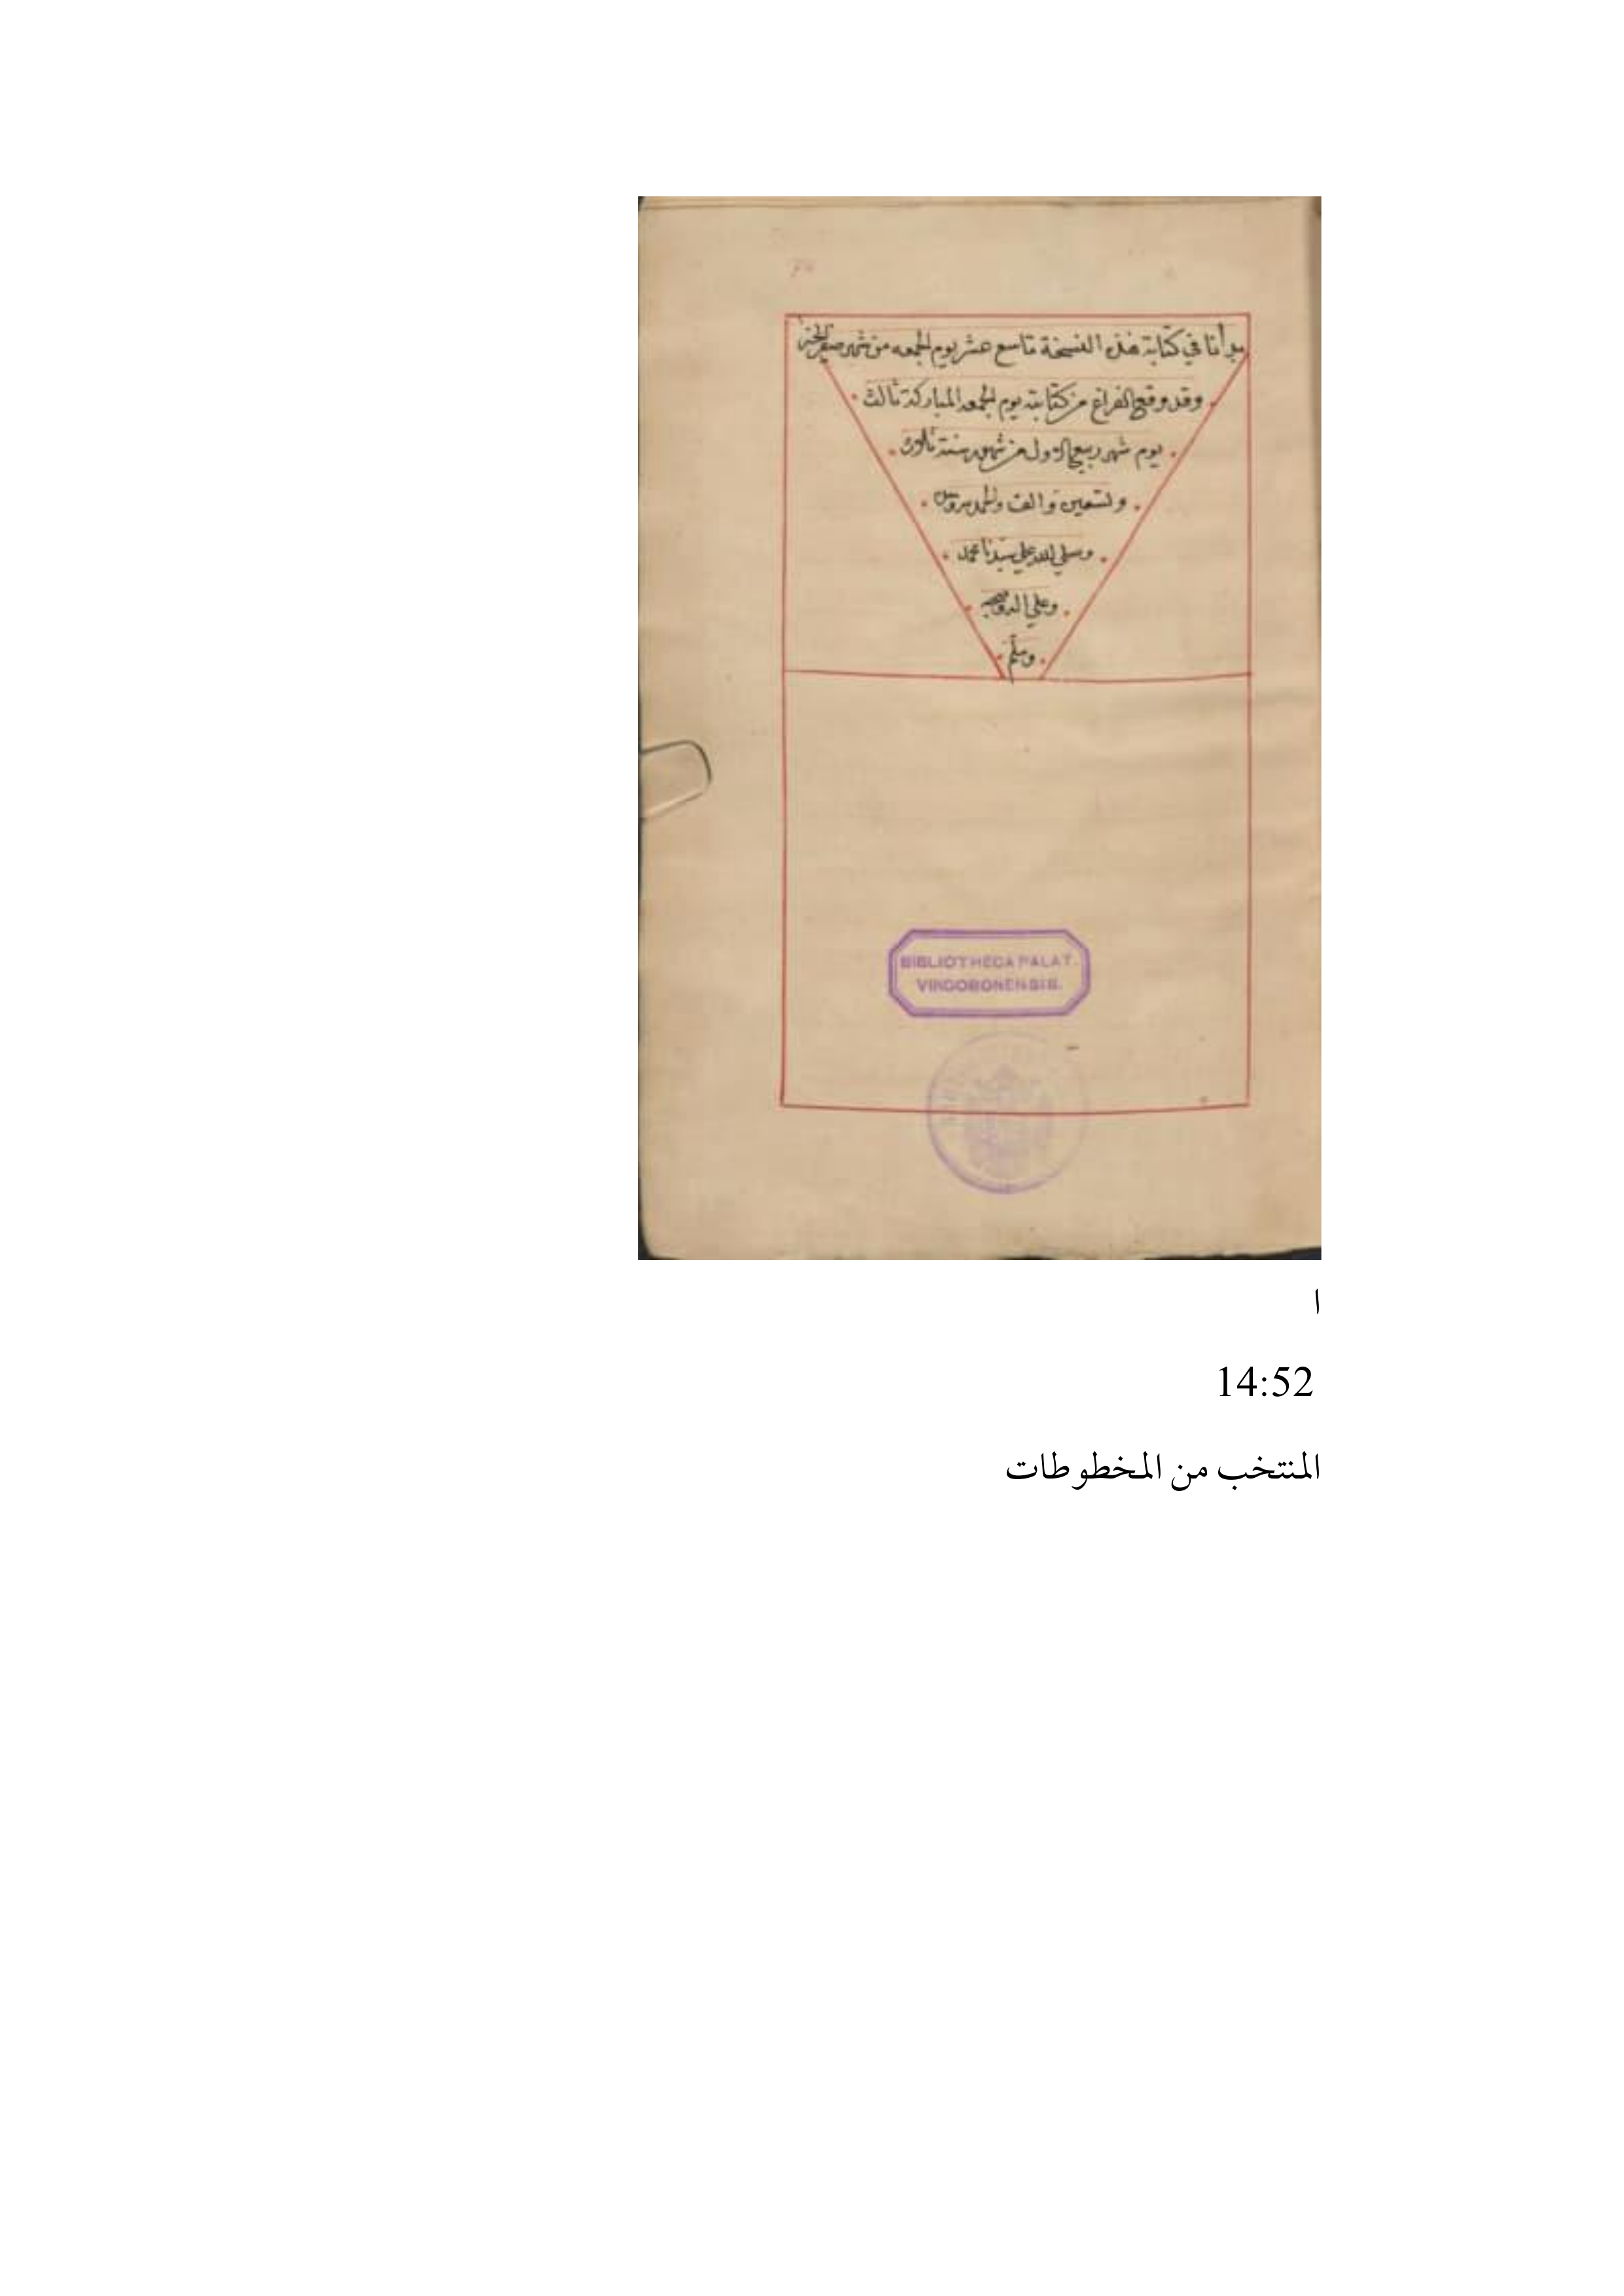 بدأنا في كتابة هذه النسخة تاسع عشر يوم الجمعه من شهر صفر الخير
وقد وقع الفراغ من كتابته يوم الجمعه المباركة ثالث
يوم شهر ربيع الاول من شهور سنة ثلاث
وتسعين والف والحمد لله
وصلي الله علي سيدنا محمد
وعلي اله وصحبه
وسلم
BIBLIOTHECA PALAT.
VINDOBONENSIS.
ا
14:52
المنتخب من المخطوطات